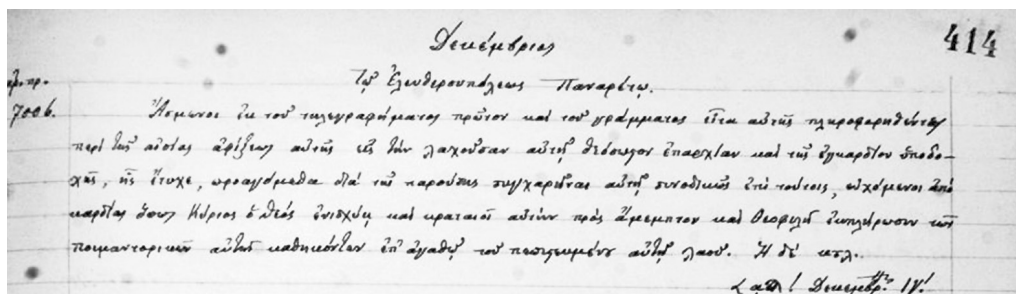 Δεκέμβριος
414
Τῷ Ἐλευθερουπόλεως Παναρέτῳ.
ἀρ. πρ.
7006.
Ἄσμενοι ἐκ τοῦ τηλεγραφήματος πρῶτον καὶ τοῦ γράμματος εἶτα αὐτῆς πληροφορηθέντες
περὶ τῆς αἰσίας ἀφίξεως αὐτῆς εἰς τὴν λαχοῦσαν αὐτῇ θεόσωστον ἐπαρχίαν καὶ τῆς ἐγκαρδίου ὑποδο-
χῆς, ἧς ἔτυχε, προαγόμεθα διὰ τῆς παρούσης συγχαρῆναι αὐτῇ συνοδικῶς ἐπὶ τούτοις, εὐχόμενοι ἀπὸ
καρδίας ὅπως Κύριος ὁ Θεὸς ἐνισχύῃ καὶ κραταιοῖ αὐτὴν πρὸς ἄμεμπτον καὶ θεοφιλῆ ἐκπλήρωσιν τῶν
ποιμαντορικῶν αὐτῆς καθηκόντων ἐπ' ἀγαθῷ τοῦ πεπιστευμένου αὐτῇ λαοῦ. Ἡ δὲ κτλ.
Δεκεμβρ.